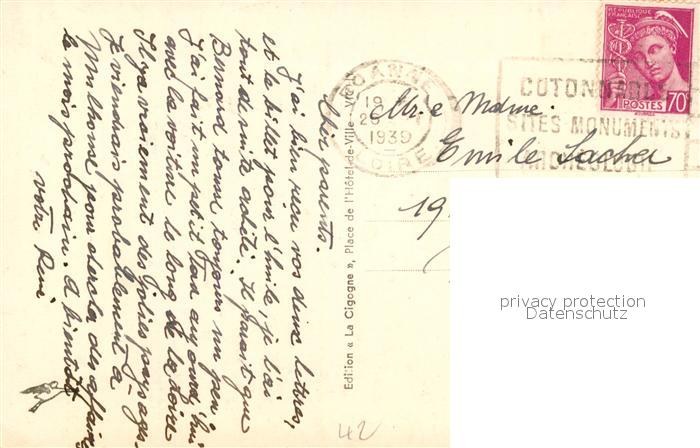 Chers parents.
J'ai bien reçu vos deux lettres,
et le billet pour l'Emile, je l'ai
tout de suite acheté. Il paraît que
Bernard tonne toujours un peu
J'ai fait un petit tour aujourd'hui
avec la voiture le long de la Loire
Il y a vraiement des jolies paysages.
Je viendrais probablement à
Mulhouse pour des affaires
le mois prochain. A bientôt
votre René
Edition « La Cigogne », Place de l'Hôtel-de-Ville
ROANNE
19
1939
LOIRE
COTONNADES
SITES - MONUMENTS
REPUBLIQUE FRANÇAISE
POSTES 70
Mr. e Madme.
Emile Sacher
19
privacy protection
Datenschutz
42